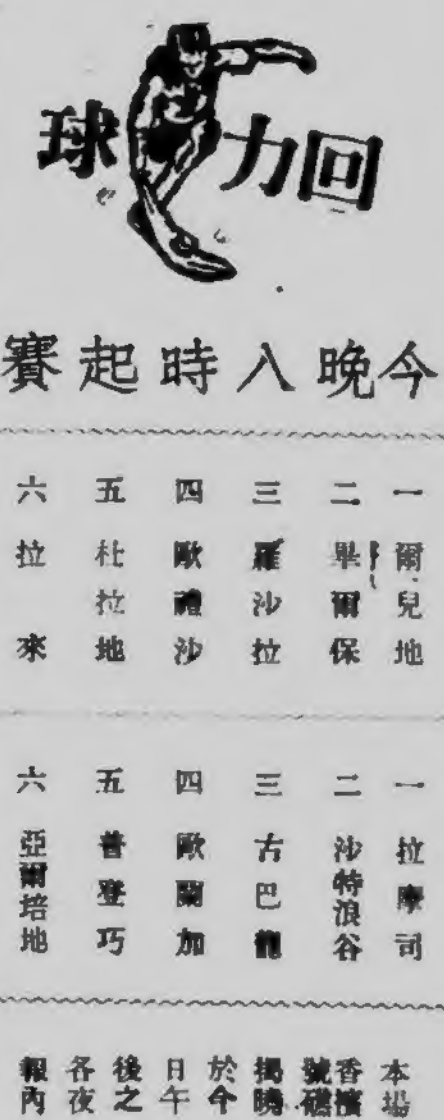 回力球
今晚八時起賽
一 爾兒地
二 畢爾保
三 羅沙拉
四 歐禮沙
五 杜拉地
六 拉來
一 拉摩司
二 沙特浪谷
三 古巴龍
四 歐蘭加
五 普登巧
六 亞爾培地
本場
香檳
號碼
揭曉
於今
日午
後之
各夜
報內